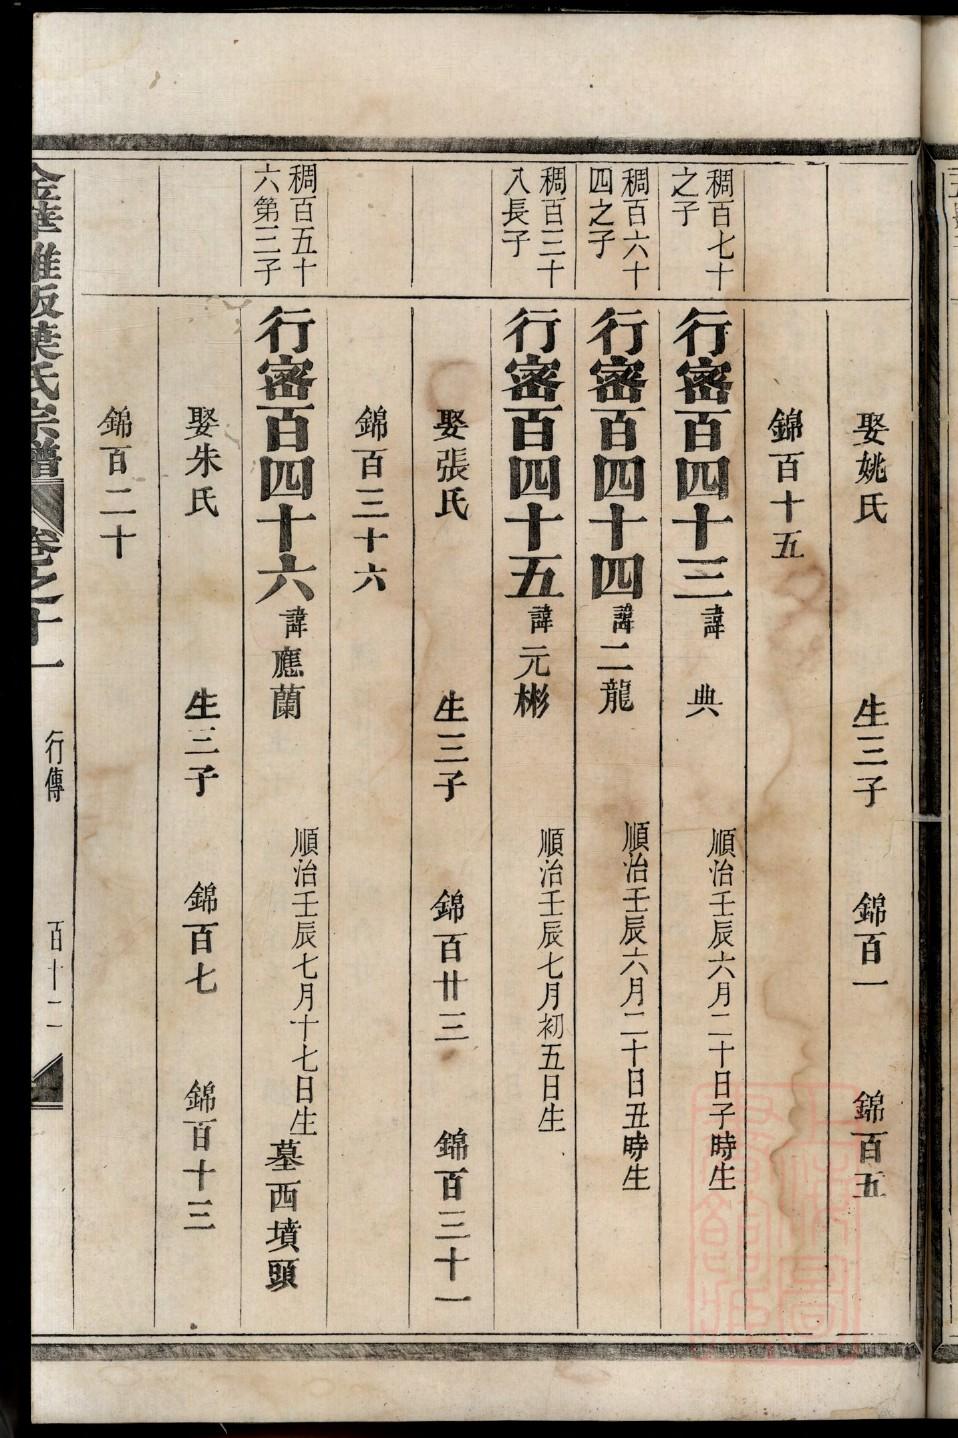 娶姚氏 生三子 錦百一 錦百五
錦百十五
稠百七十之子
行密百四十三 諱典 順治壬辰六月二十日子時生
稠百六十四之子
行密百四十四 諱二龍 順治壬辰六月二十日丑時生
稠百三十八長子
行密百四十五 諱元彬 順治壬辰七月初五日生
娶張氏 生三子 錦百廿三 錦百三十一
錦百三十六
稠百五十六第三子
行密百四十六 諱應蘭 順治壬辰七月十七日生 墓西墳頭
娶朱氏 生三子 錦百七 錦百十三
錦百二十
金華雅坂葉氏宗譜 卷之十一 行傳 百十二